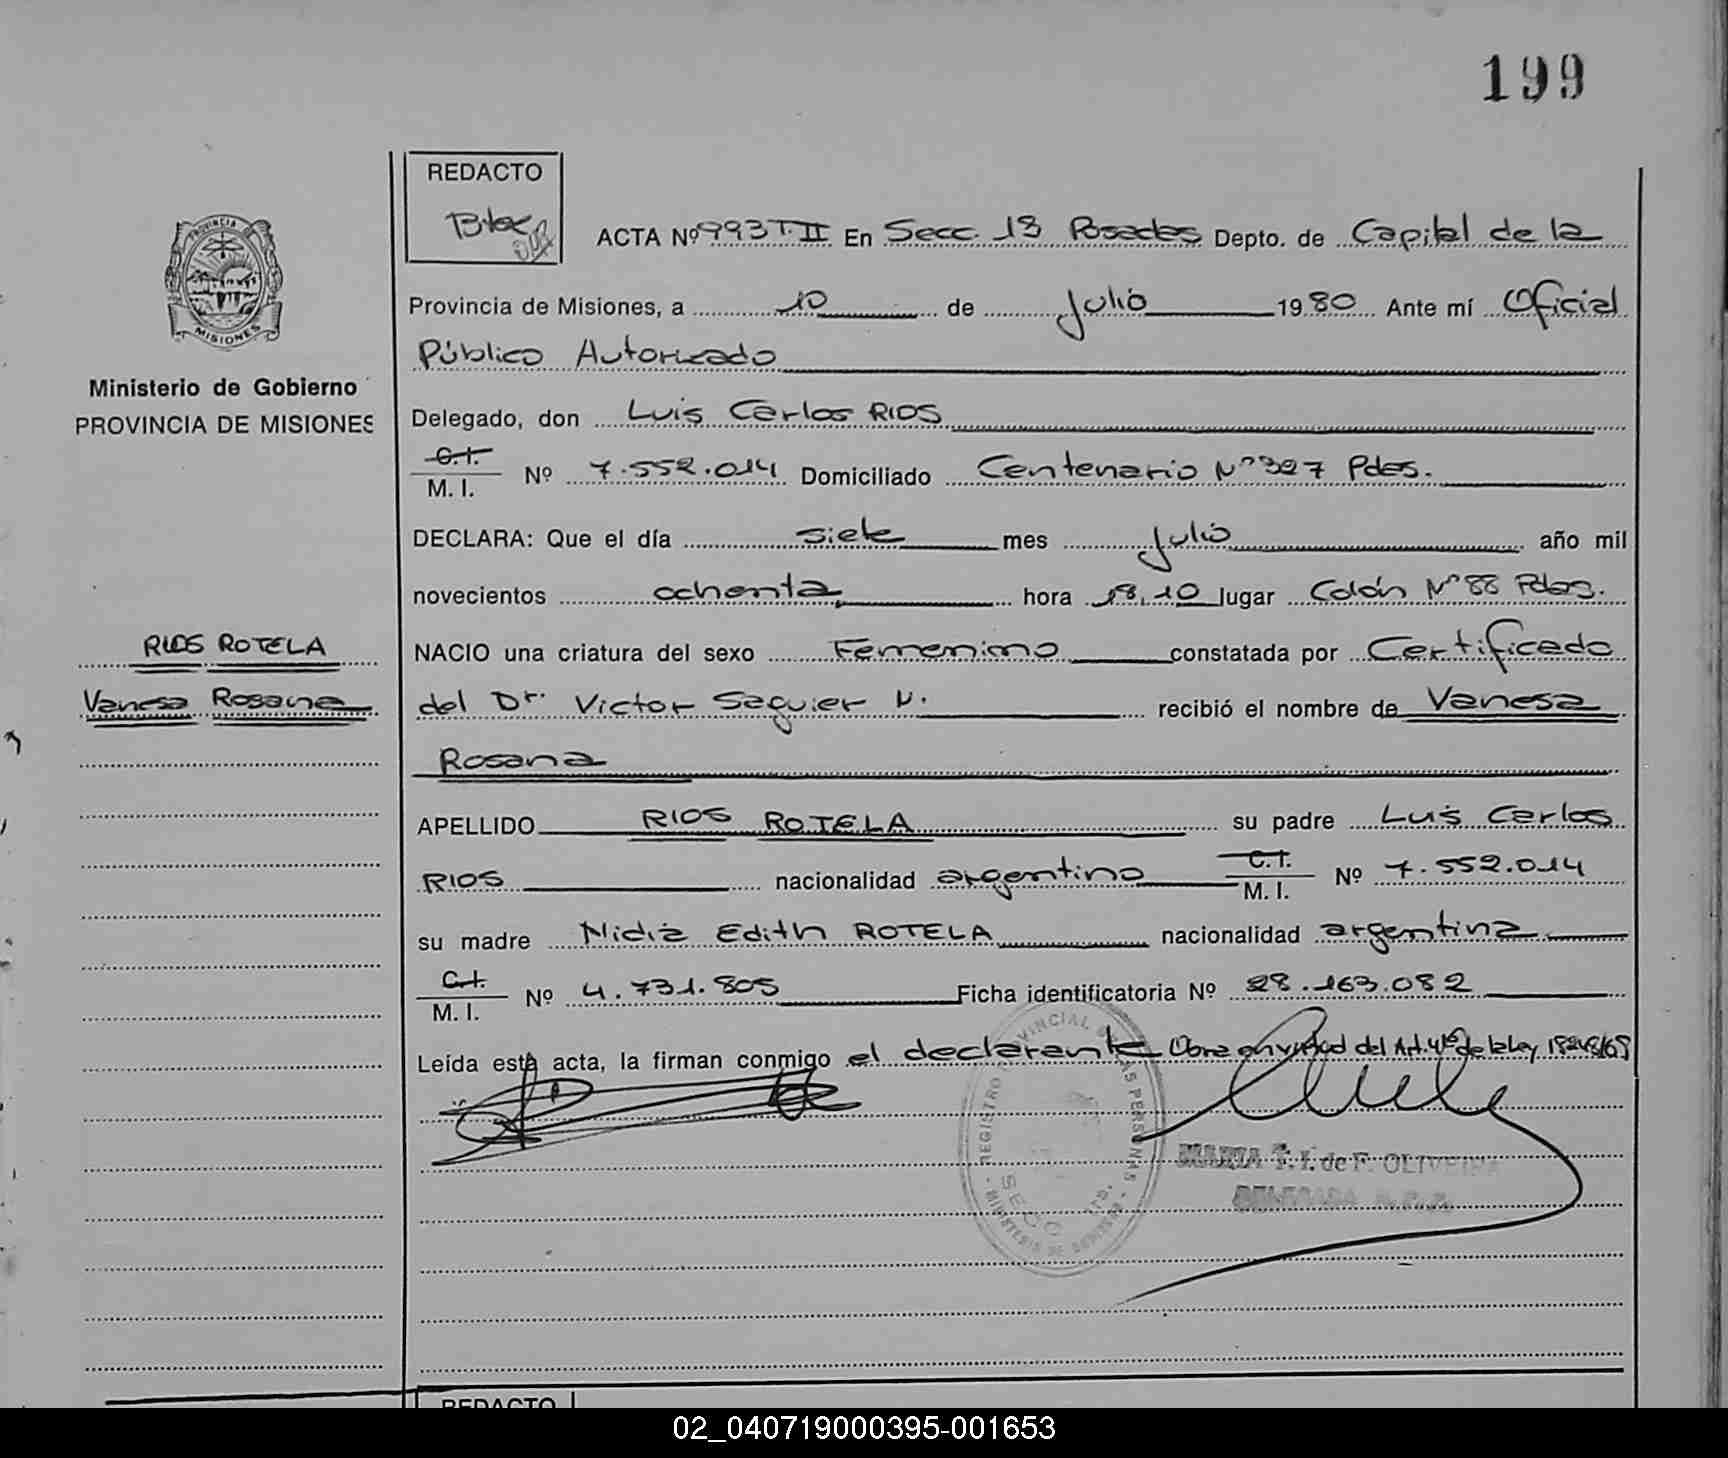 199
REDACTO
ACTA Nº 993 T. II En Secc. 13 Posadas Depto. de Capital de la
Provincia de Misiones, a 10 de Julio 1980 Ante mí Oficial
Público Autorizado
Delegado, don Luis Carlos RIOS
C. I.
M. I. Nº 7.552.014 Domiciliado Centenario Nº 327 Pdas.
DECLARA: Que el día siete mes julio año mil
novecientos ochenta, hora 18,10 lugar Colón Nº 88 Pdas.
NACIO una criatura del sexo Femenino constatada por Certificado
del Dr. Victor Saguier N. recibió el nombre de Vanesa
Rosana
APELLIDO RIOS ROTELA su padre Luis Carlos
RIOS nacionalidad argentino C. I. M. I. Nº 7.552.014
su madre Nidia Edith ROTELA nacionalidad argentina
C. I.
M. I. Nº 4.731.805 Ficha identificatoria Nº 28.163.082
Leída está acta, la firman conmigo el declarante Obra en virtud del Art. 4º de la Ley 18248/69
PROVINCIA DE MISIONES
Ministerio de Gobierno
PROVINCIA DE MISIONES
RIOS ROTELA
Vanesa Rosana
REGISTRO PROVINCIAL DE LAS PERSONAS
MINISTERIO DE GOBIERNO
SECC
MARIA T. I. de F. OLIVEIRA
DELEGADA
REDACTO
02_040719000395-001653